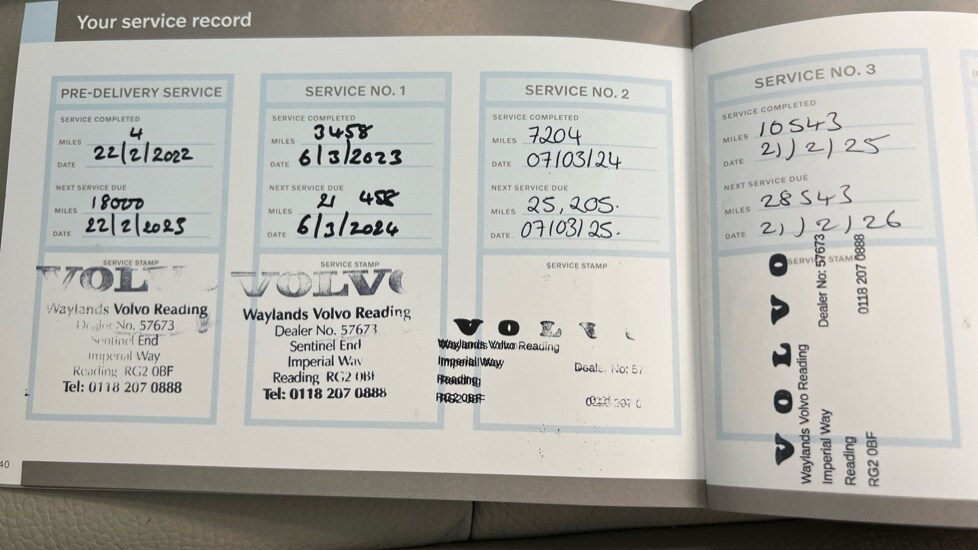 Your service record
PRE-DELIVERY SERVICE
SERVICE COMPLETED
MILES 4
DATE 22/2/2022
NEXT SERVICE DUE
MILES 18000
DATE 22/2/2023
SERVICE STAMP
VOLV
Waylands Volvo Reading
Dealer No. 57673
Sentinel End
Imperial Way
Reading RG2 0BF
Tel: 0118 207 0888
SERVICE NO. 1
SERVICE COMPLETED
MILES 3458
DATE 6/3/2023
NEXT SERVICE DUE
MILES 21 458
DATE 6/3/2024
SERVICE STAMP
VOLV
Waylands Volvo Reading
Dealer No. 57673
Sentinel End
Imperial Way
Reading RG2 0BF
Tel: 0118 207 0888
SERVICE NO. 2
SERVICE COMPLETED
MILES 7204
DATE 07/03/24
NEXT SERVICE DUE
MILES 25,205.
DATE 07/03/25.
SERVICE STAMP
VOLV
Waylands Volvo Reading
Imperial Way
Reading
RG2 0BF
SERVICE NO. 3
SERVICE COMPLETED
MILES 10543
DATE 21/2/25
NEXT SERVICE DUE
MILES 28543
DATE 21/2/26
SERVICE STAMP
VOLVO
Waylands Volvo Reading Dealer No: 57673
Imperial Way
Reading 0118 207 0888
RG2 0BF
40